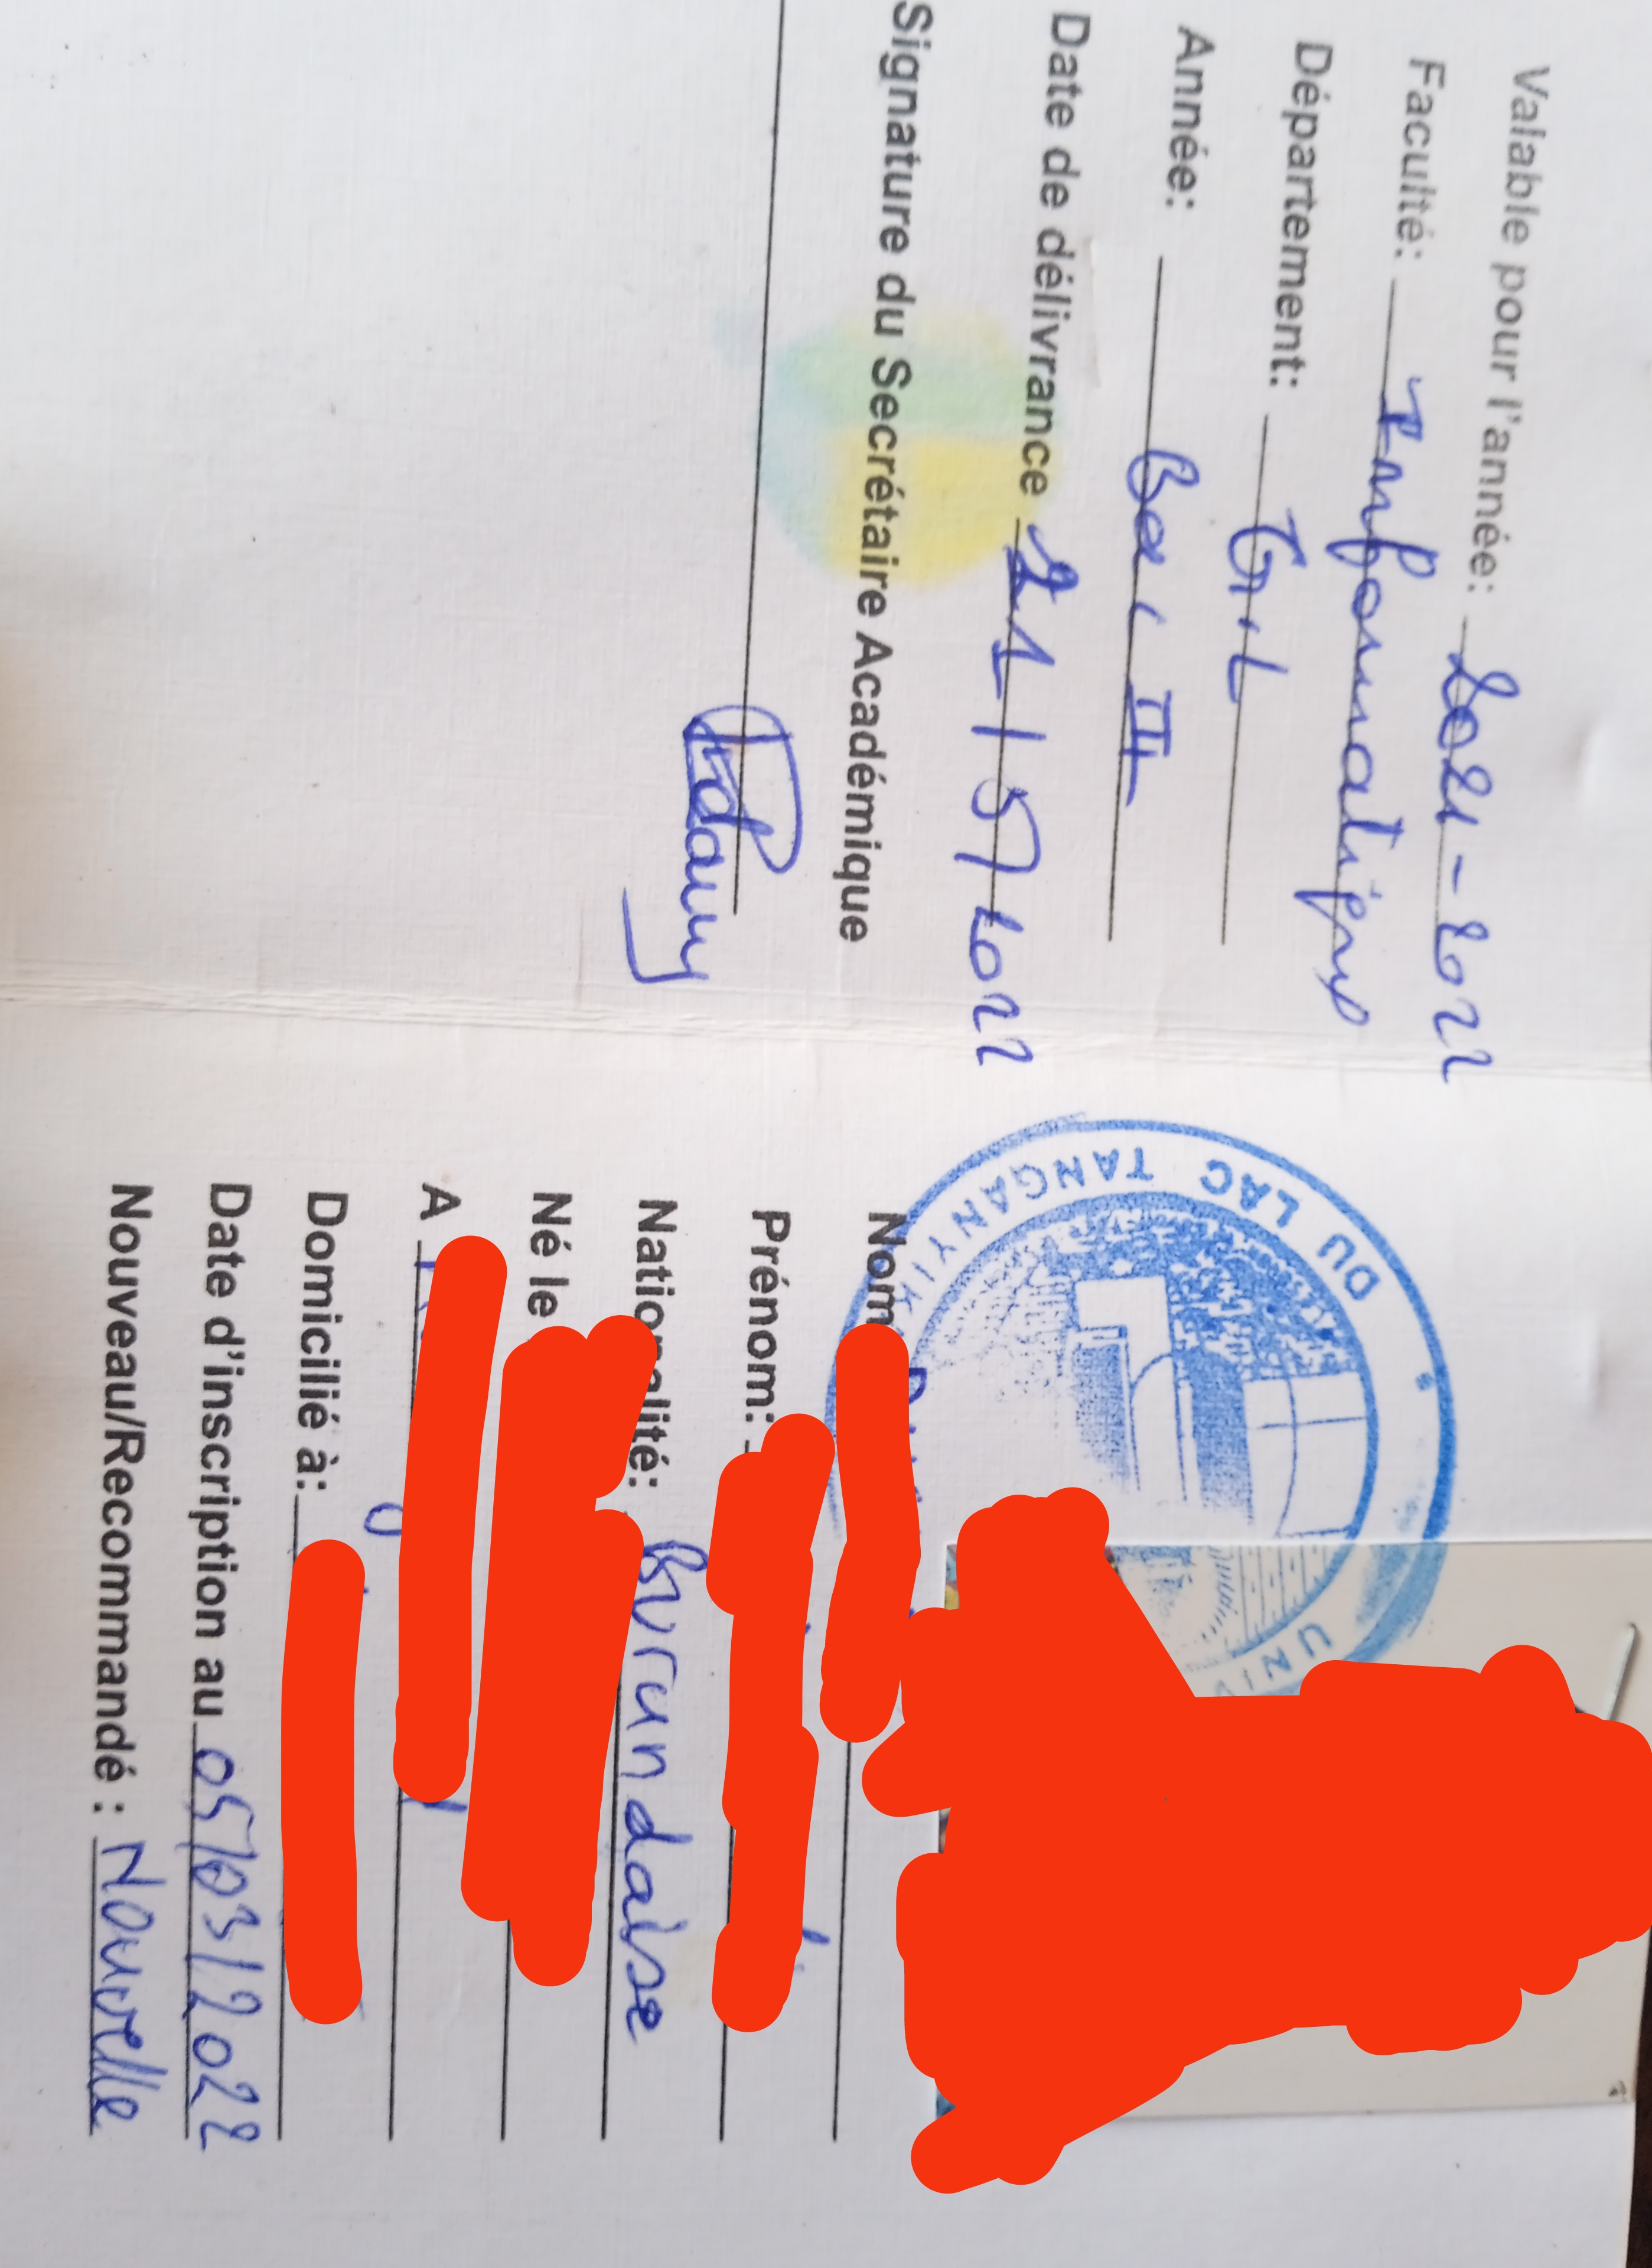 Valable pour l'année: 2021-2022
Faculté: Informatique
Département: G.L
Année: Bac III
Date de délivrance 21/5/2022
Signature du Secrétaire Académique
DU LAC TANGANYIK
UNI
Nom
Prénom:
Nationalité: Burundaise
Né le
A
Domicilié à:
Date d'inscription au 05/03/2022
Nouveau/Recommandé : Nouvelle